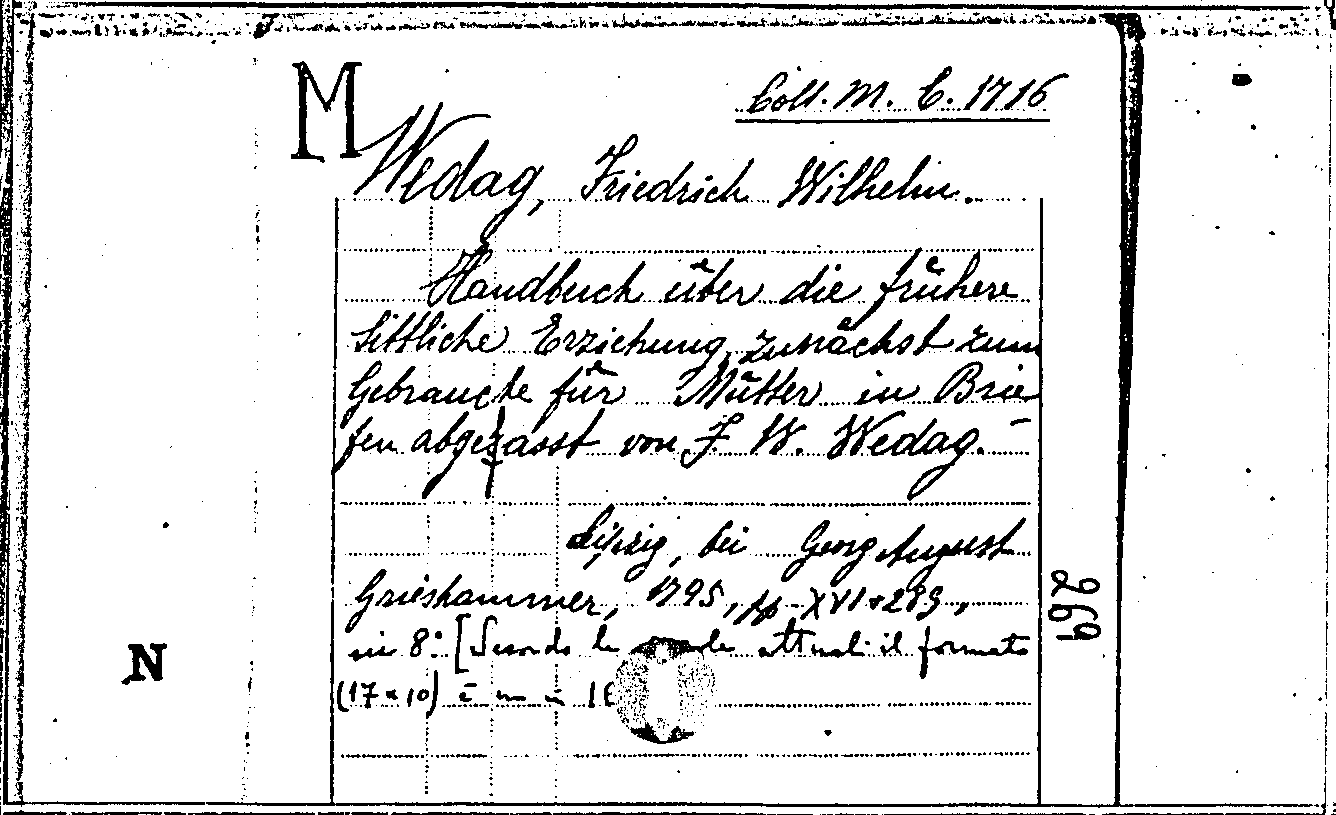 M
Coll. M. C. 1716
Wedag, Friedrich Wilhelm.
Handbuch über die frühere
sittliche Erziehung, zunächst zum
Gebrauche für Mütter in Brie
fen abgefasst von F. W. Wedag. –
Leipzig, bei Georg August
Grieshammer, 1795, pp. XVI + 283,
in 8.° [Secondo le attuali il formato
(17 × 10) è un in
269
N